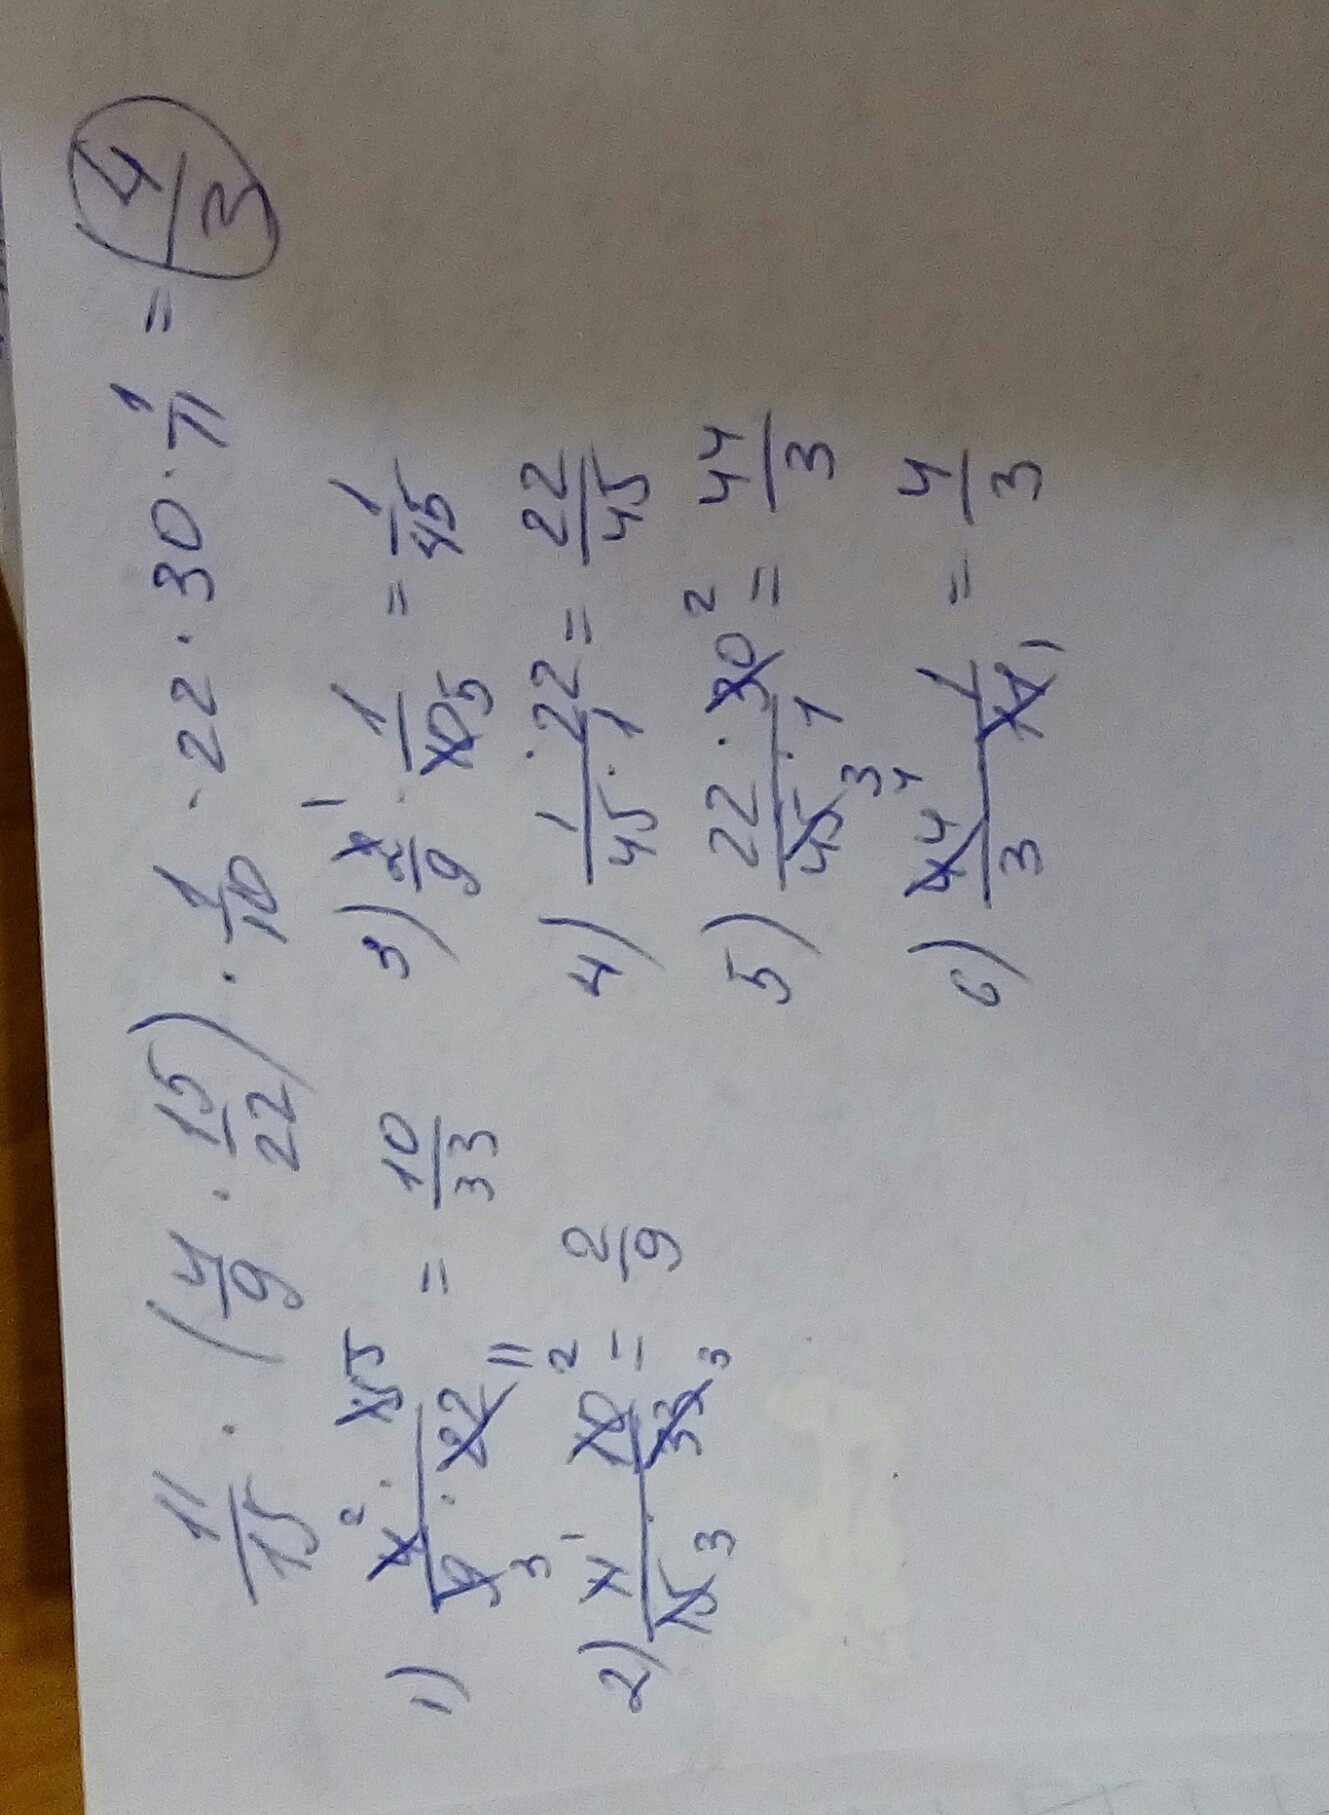 11/15 · (4/9 · 15/22) · 1/10 · 22 · 30 · 1/11 = 4/3
1) 4² · 15 5 / 9 3 · 22 11 = 10/33
2) 11 1 · 10 2 / 15 3 · 33 3 = 2/9
3) 2 1 / 9 · 1 / 10 5 = 1/45
4) 1 · 22 / 45 · 1 = 22/45
5) 22 · 30 2 / 45 3 · 1 = 44/3
6) 44 4 / 3 · 1 / 11 1 = 4/3